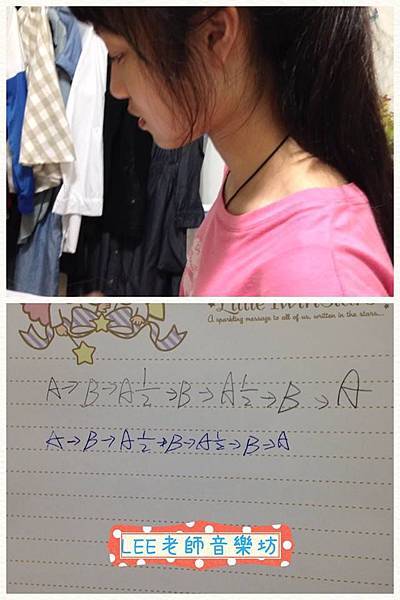 Little Twin Stars
A sparkling message to all of us, written in the stars...
A→B→A½→B→A½→B→A
A→B→A½→B→A½→B→A
LEE老師音樂坊